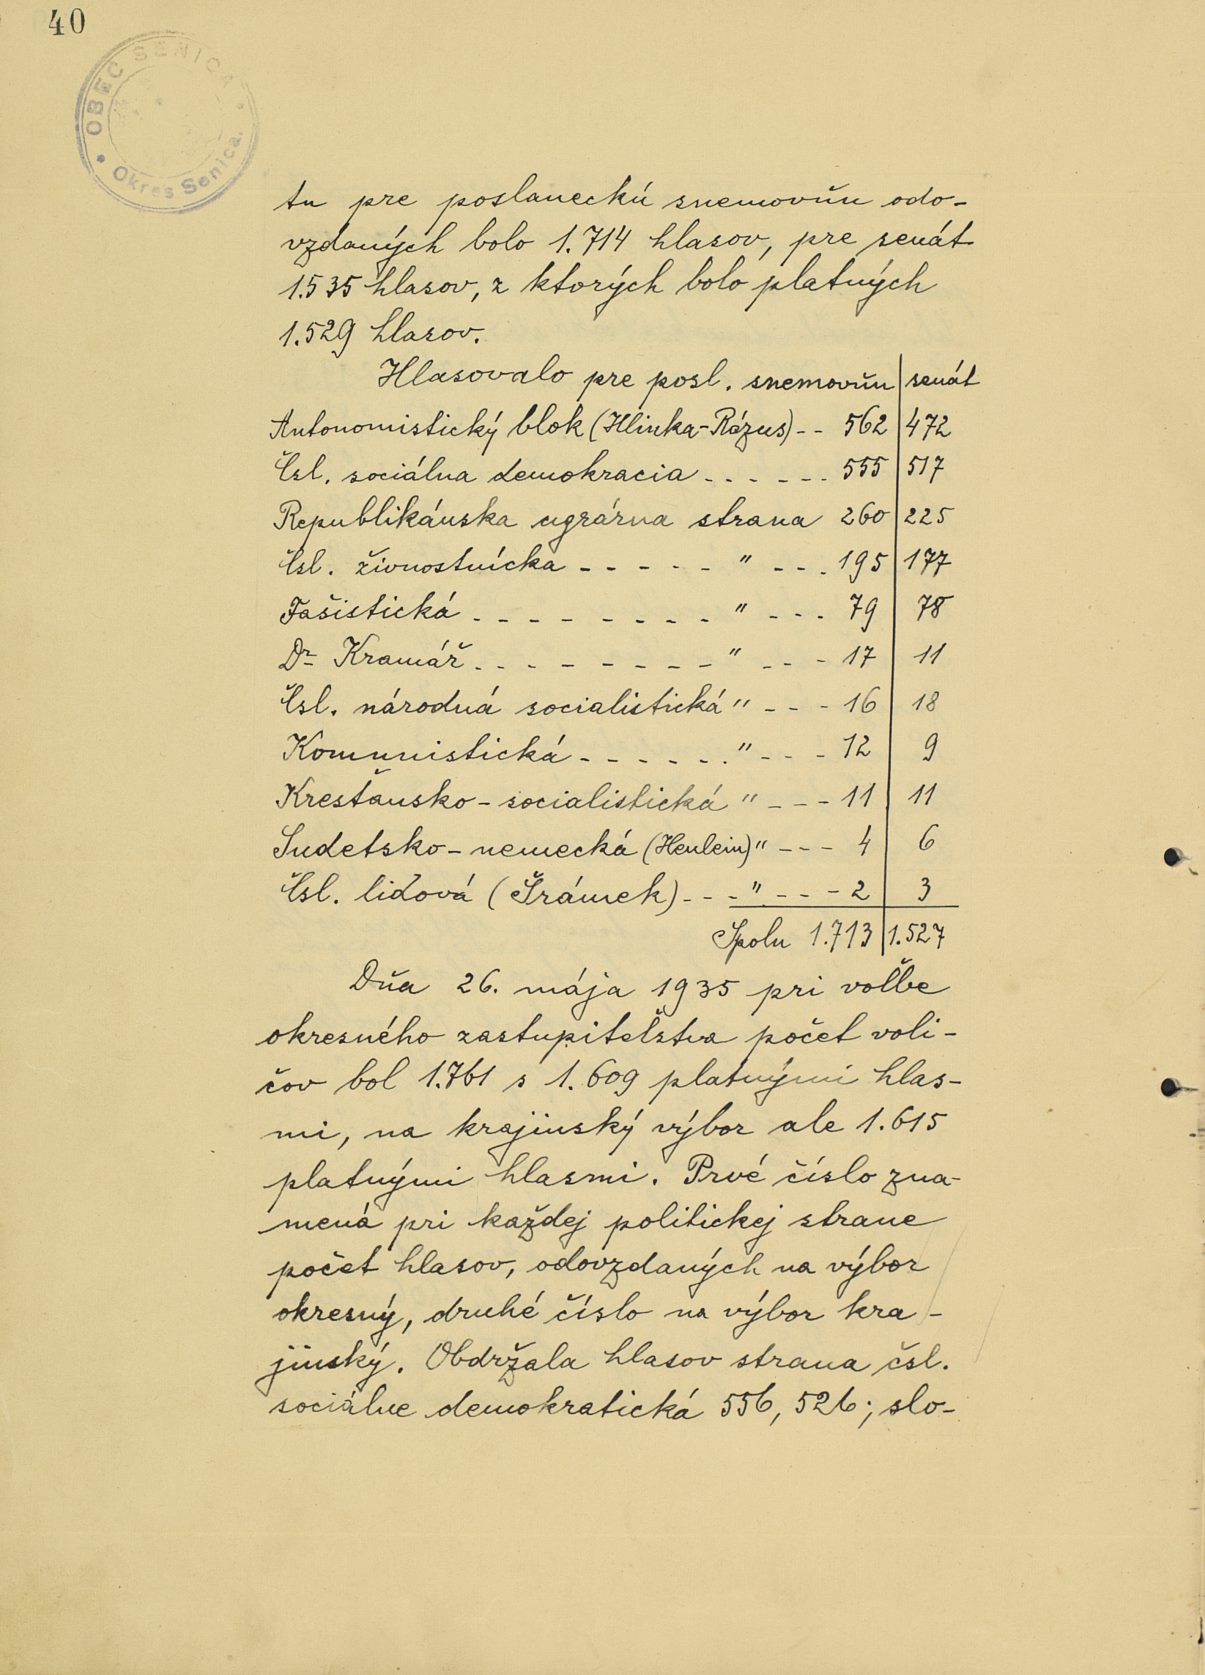 40
OBEC SENICA
Okres Senica.
tu pre poslaneckú snemovňu odo-
vzdaných bolo 1.714 hlasov, pre senát
1.535 hlasov, z ktorých bolo platných
1.529 hlasov.
Hlasovalo pre posl. snemovňu senát
Autonomistický blok (Hlinka-Rázus) -- 562 472
Čsl. sociálna demokracia - - - - - - 555 517
Republikánska agrárna strana 260 225
Čsl. živnostnícka - - - - - " - - - 195 177
Fašistická - - - - - - - - " - - - 79 78
Dr Kramář - - - - - - - - " - - - 17 11
Čsl. národná socialistická " - - - 16 18
Komunistická - - - - - - " - - - 12 9
Kresťansko-socialistická " - - - 11 11
Sudetsko-nemecká (Henlein) " - - - 4 6
Čsl. liďová (Šrámek) - - - " - - - - 2 3
Spolu 1.713 1.527
Dňa 26. mája 1935 pri voľbe
okresného zastupiteľstva počet voli-
čov bol 1.761 s 1.609 platnými hlas-
mi, na krajinský výbor ale 1.615
platnými hlasmi. Prvé číslo zna-
mená pri každej politickej strane
počet hlasov, odovzdaných na výbor
okresný, druhé číslo na výbor kra-
jinský. Obdržala hlasov strana čsl.
sociálne demokratická 556, 526; slo-